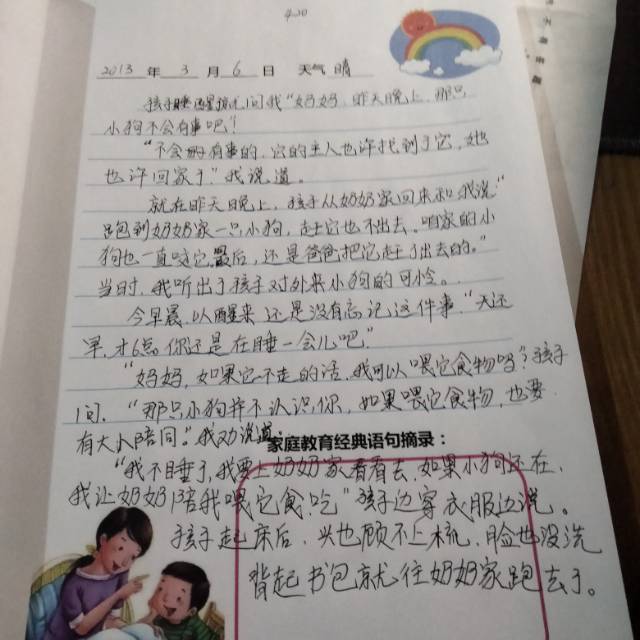 4.20
2013 年 3 月 6 日 天气 晴
孩子睡醒问我"妈妈,昨天晚上,那只
小狗不会有事吧?"
"不会有事的,它的主人也许找到了它,她
也许回家了"我说道。
就在昨天晚上,孩子从奶奶家回来和我说:"
跑到奶奶家一只小狗,赶它也不出去。咱家的小
狗也一直咬它,最后,还是爸爸把它赶了出去的。"
当时,我听出了孩子对外来小狗的可怜。
今早晨,以醒来还是没有忘记这件事。"天还
早,才6点,你还是在睡一会儿吧。"
"妈妈,如果它不走的话,我可以喂它食物吗?"孩子
问。"那只小狗并不认识你,如果喂它食物,也要
有大人陪同。"我劝说道:
家庭教育经典语句摘录:
"我不睡了,我要上奶奶家看看去,如果小狗还在,
我让奶奶陪我喂它食吃"孩子边穿衣服边说。
孩子起床后,头也顾不上梳,脸也没洗
背起书包就往奶奶家跑去了。